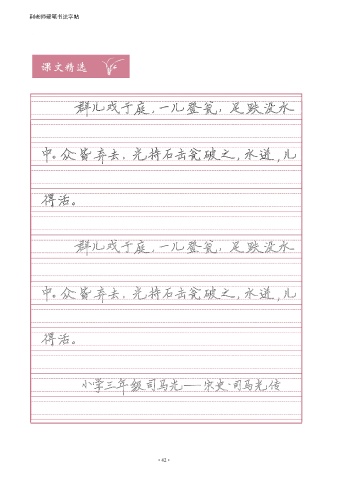 副老师硬笔书法字帖
课文精选
群儿戏于庭，一儿登瓮，足跌没水
中。众皆弃去，光持石击瓮破之，水迸，儿
得活。
群儿戏于庭，一儿登瓮，足跌没水
中。众皆弃去，光持石击瓮破之，水迸，儿
得活。
小学三年级司马光——宋史·司马光传
·43·